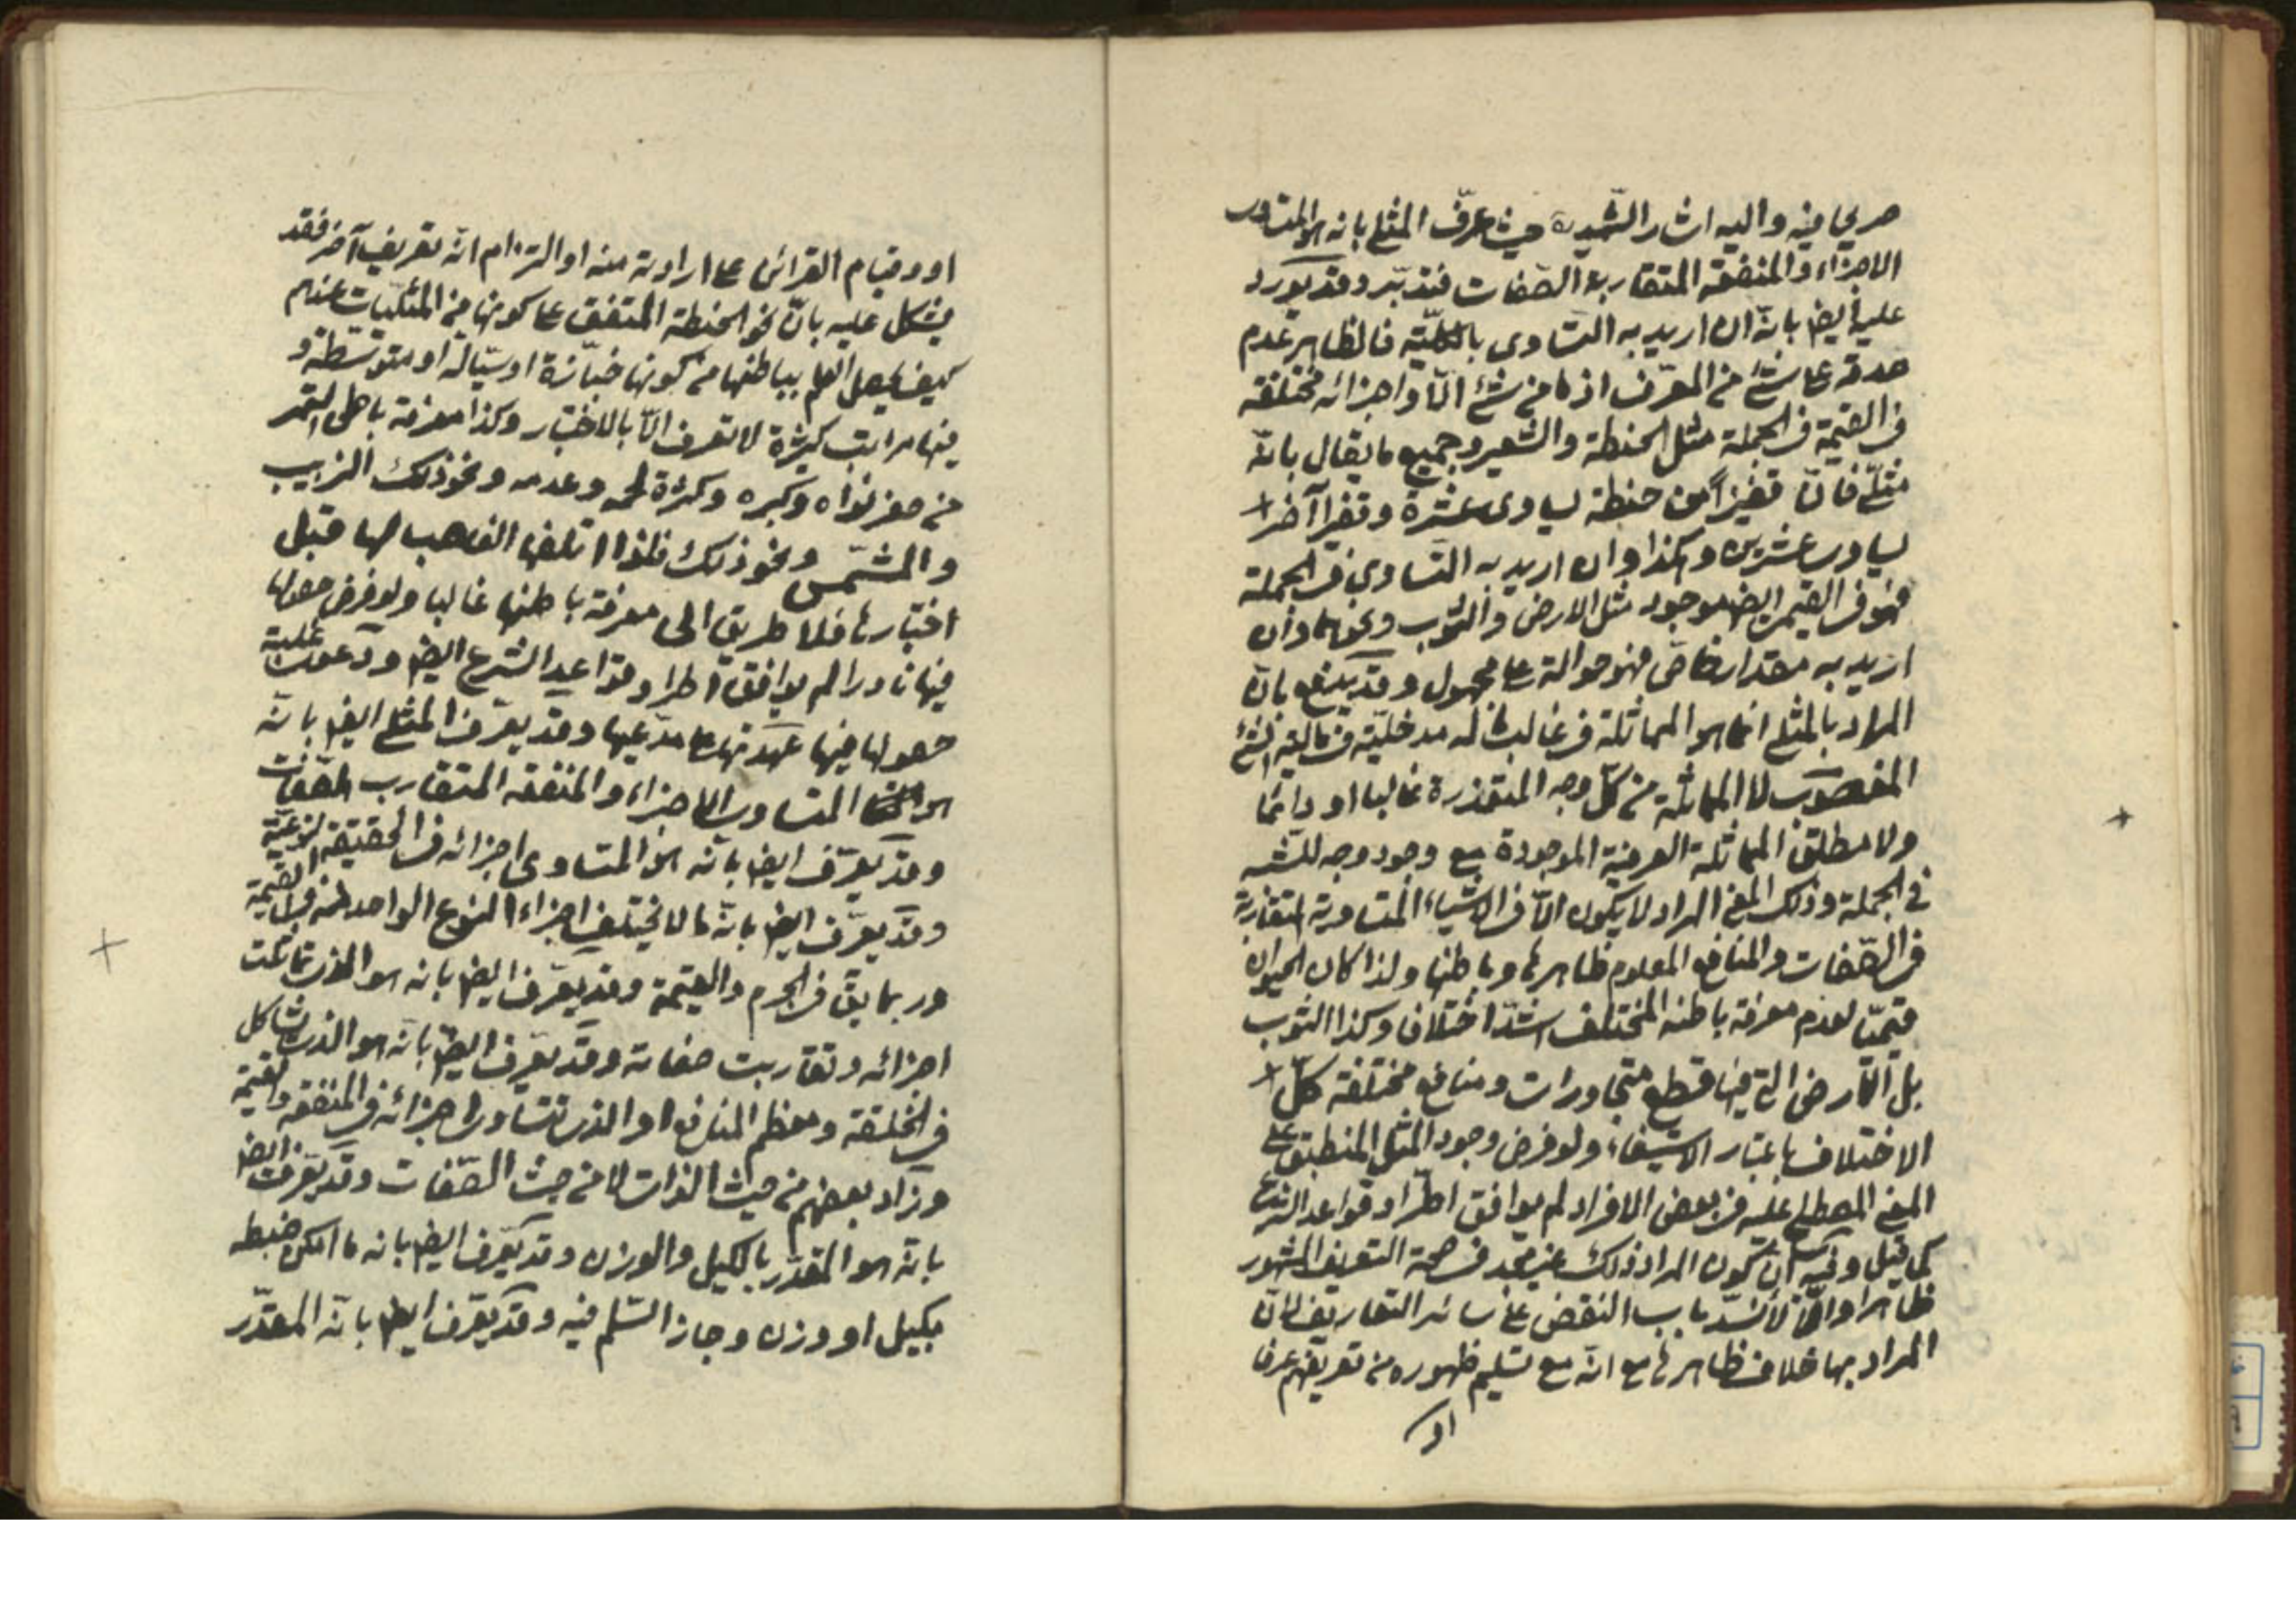 صريحا فيه واليه اشار الشهيد ره حيث عرّف المثلي بانه هو المتساوى
الاجزاء والمنفعة المتقاربة الصّفات فتدبّر وقد يورد
عليه ايضا بانّه ان اريد به التساوى بالكليّة فالظاهر عدم
صدقه على شئ من المعرّف اذ ما من شئ الّا واجزائه مختلفة
فى القيمة فى الجملة مثل الحنطة والشعير وجميع ما يقال بانّه
مثلىّ فانّ قفيزاً من حنطة يساوى عشرة وقفيزا آخر
يساوى عشرين وهكذا وان اريد به التساوى فى الجملة
فهو فى القيمى ايضا موجود مثل الارض والثوب ونحوهما وان
اريد به مقدار خاصّ فهو حوالة على مجهول وقد يدفع بانّ
المراد بالمثلى انما هو المماثلة فى غالب ما له مدخليّة فى مالية الشئ
المغصوب لا المماثلة من كلّ وجه المتعذرة غالبا او دائما
ولا مطلق المماثلة العرفية الموجودة مع وجود وجه للشبه
فى الجملة وذلك المعنى المراد لا يكون الّا فى الاشياء المتساوية المتقاربة
فى الصّفات والمنافع المعلوم ظاهرها وباطنها ولذا كان الحيوان
قيميّا لعدم معرفة باطنه المختلف اشدّ اختلاف وكذا الثوب
بل الارض التى فيها قطع متجاورات ومنافع مختلفة كلّ
الاختلاف باعتبار الاستيفاء ولو فرض وجود المثل المنطبق على
المعنى المصطلح عليه فى بعض الافراد لم يوافق اطّراد قواعد الشرع
كما قيل وفيه انّ كون المراد ذلك غير مجد فى صحة التعريف المشهور
ظاهرا والّا لانسدّ باب النقض على سائر التعاريف لانّ
المراد بها خلاف ظاهرها مع انّه مع تسليم ظهوره من تعريفهم عرفا
او
او وقيام القرائن على ارادته منه او التزام انّه تعريف آخر فقد
يشكل عليه بانّ نحو الحنطة المتفق على كونها من المثليّات عندهم
كيف يحصل العلم بباطنها من كونها خبّازة او سيّالة او متوسّطة و
فيها مراتب كثيرة لا تعرف الّا بالاختبار وكذا معرفة باطن التمر
من صغر نواه وكبره وكثرة لحمه وعدمه ونحو ذلك الزبيب
والمشمس ونحو ذلك فلو اتلفها الغاصب لها قبل
اختبارها فلا طريق الى معرفة باطنها غالبا ولو فرض حصولها
فيها نادرا لم يوافق اطراد قواعد الشرع ايضا ودعوى غلبة
حصولها فيها عهدتها على مدّعيها وقد يعرّف المثلى ايضا بانّه
هو المتساوى الاجزاء والمنفعة المتقارب الصّفات
وقد يعرّف ايضا بانّه هو المتساوى اجزائه فى الحقيقة النوعيّة
وقد يعرّف ايضا بانّه ما لا يختلف اجزاء النوع الواحد منه فى القيمة
وربما يقّ فى الجرم والقيمة وقد يعرّف ايضا بانه هو الذى تماثلت
اجزائه وتقاربت صفاته وقد يعرّف ايضا بانّه هو الذى تشاكل
فى الخلقة ومعظم المنافع او الذى تتساوى اجزائه فى المنفعة والقيمة
وزاد بعضهم من حيث الذات لا من حيث الصّفات وقد يعرّف ايضا
بانّه هو المقدّر بالكيل والوزن وقد يعرّف ايضا بانه ما امكن ضبطه
بكيل او وزن وجاز السّلم فيه وقد يعرّف ايضا بانّه المقدّر